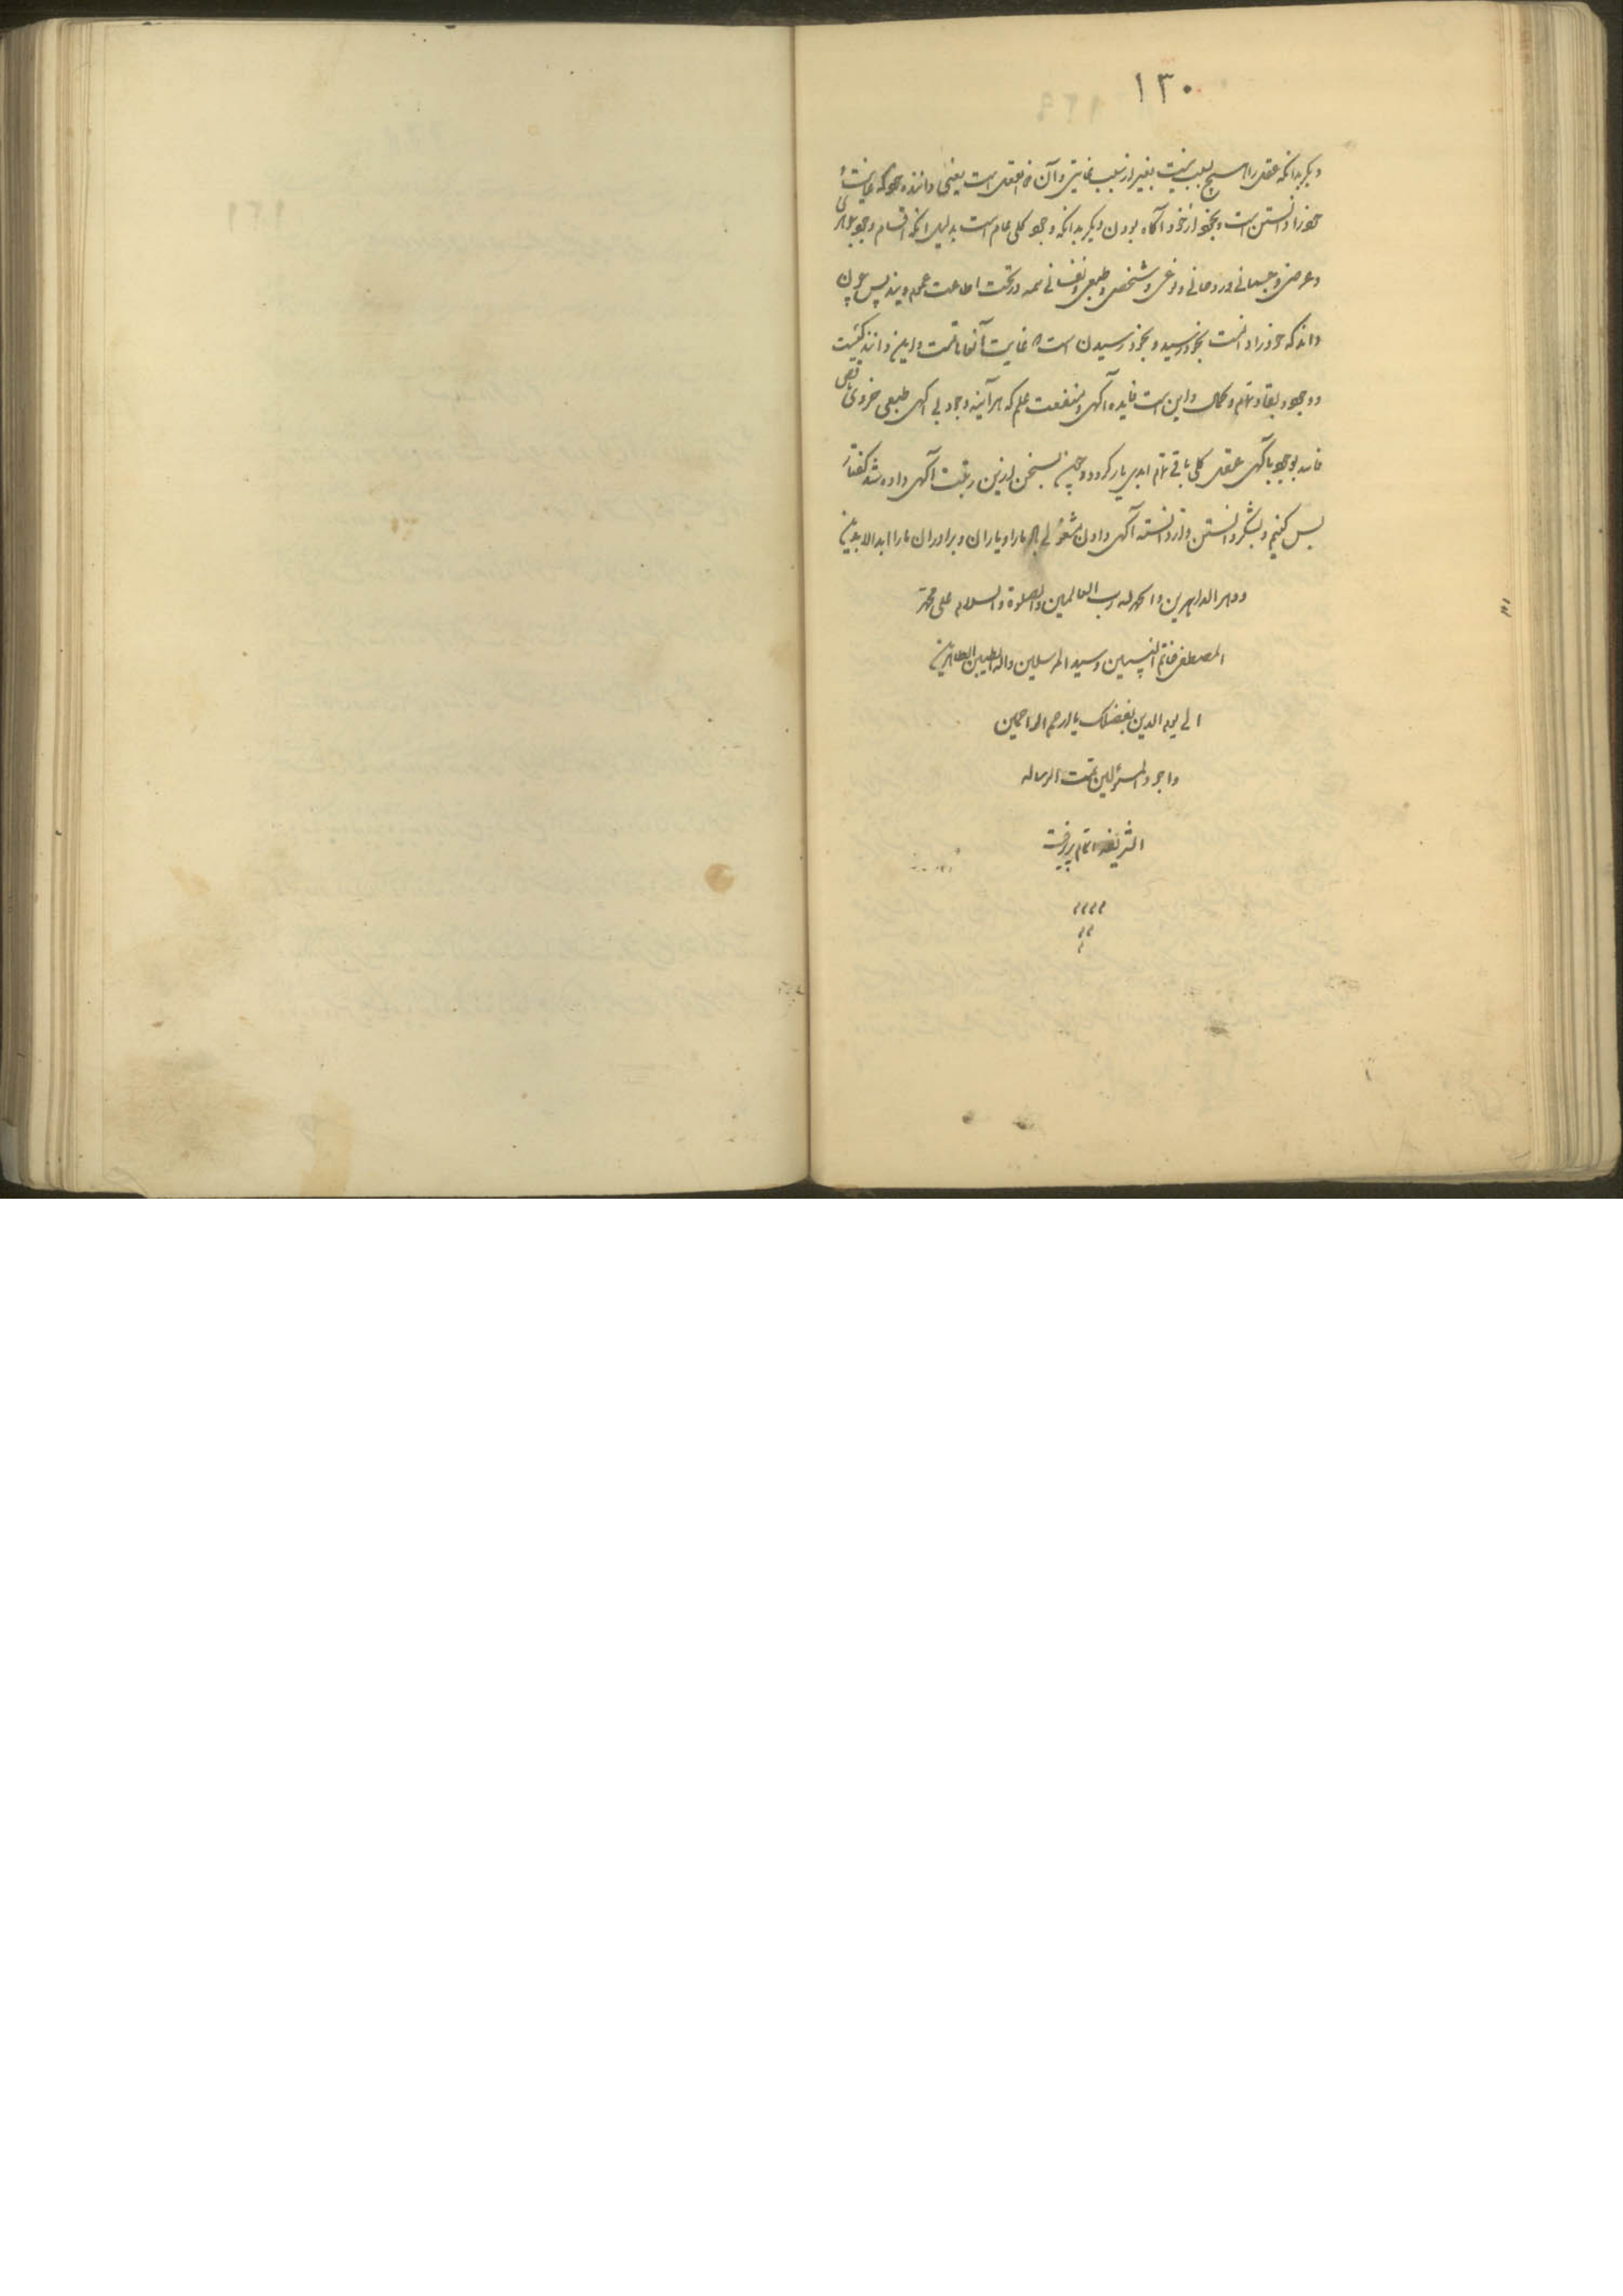 ١٣٠
دیگر بدانکه عقل را هیچ سبب نیست بغیر از سبب غایتی و آن هم عقل است یعنی داننده چه که غایت
خود را دانستن است و بخود از خود آگاه بودن دیگر بدانکه وجود کلی عام است بدلیل آنکه اقسام وجود جوهری
و عرضی و جسمانی و روحانی و نوعی و شخصی و طبیعی و نفسانی همه در تحت اطاعت عموم ویند پس چون
داند که خود را دانست بخود رسید و بخود رسیدن است غایت و این داننده کیست
و وجود و بقا و تمام و کمال و این است فایده آگهی و منفعت علم که هر آینه وجود بی آگهی طبیعی جزوی ناقص
فاسد بود و وجود با آگهی عقلی کلی باقی تمام ابدی یار گردد و چون سخن بدین رتبت آگهی داده شد گفتار
بس کنیم و بشکر دانستن و از دانسته آگهی دادن مشغول ما را و یاران و برادران ما را ابد الآبدین
و دهر الداهرین و الحمد لله رب العالمین والصلوة والسلام علی محمد
المصطفی خاتم النبیین و سید المرسلین و اله الطیبین الطاهرین
الی یوم الدین بفضلک یا ارحم الراحمین
و اجود المسؤلین تمت الرساله
الشریفه اتمام پذیرفت